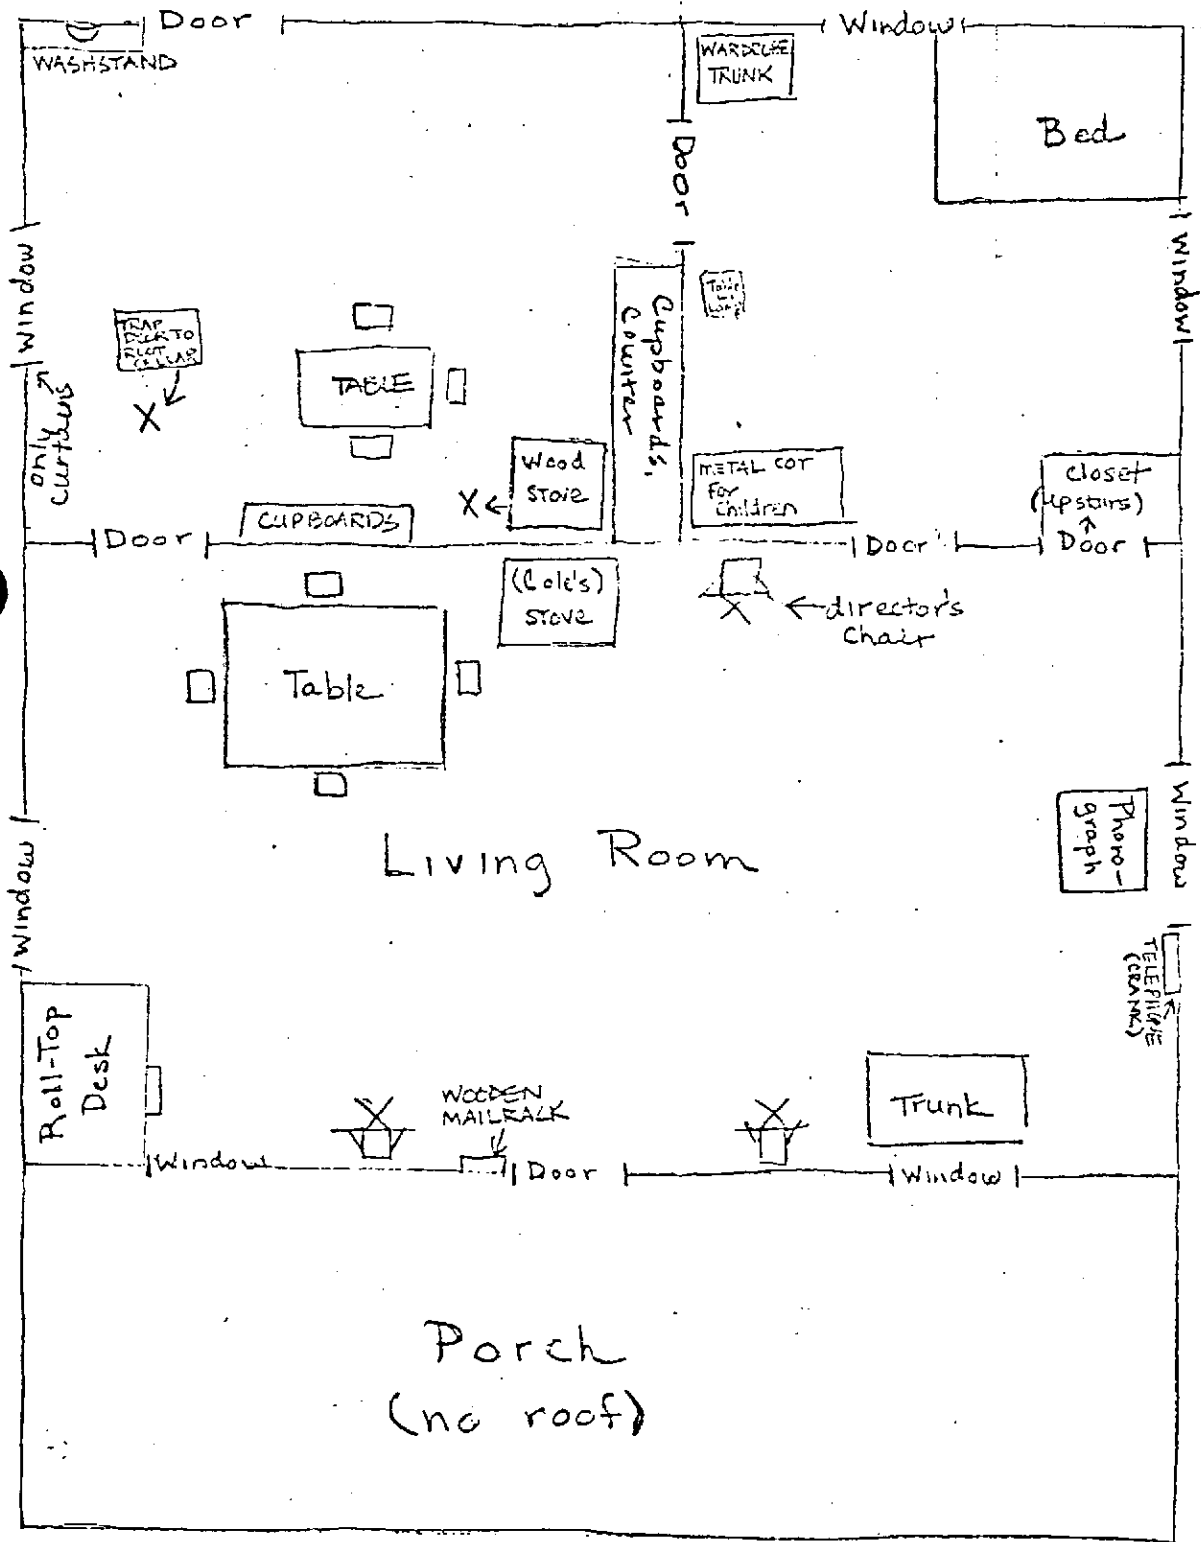 Door
Window
WASHSTAND
WARDROBE
TRUNK
Bed
Door
Window
Window
only
curtains
TRAP
DOOR TO
ROOT
CELLAR
X
TABLE
Cupboards,
Counter
Table
Wood
Stove
X
METAL COT
For
Children
closet
(upstairs)
CUPBOARDS
Door
Door
Door
(Cole's)
Stove
X
director's
Chair
Table
Living Room
Phono-
graph
Window
Window
TELEPHONE
(CRANK)
Roll-Top
Desk
X
WOODEN
MAILRACK
X
Trunk
Window
Door
Window
Porch
(no roof)